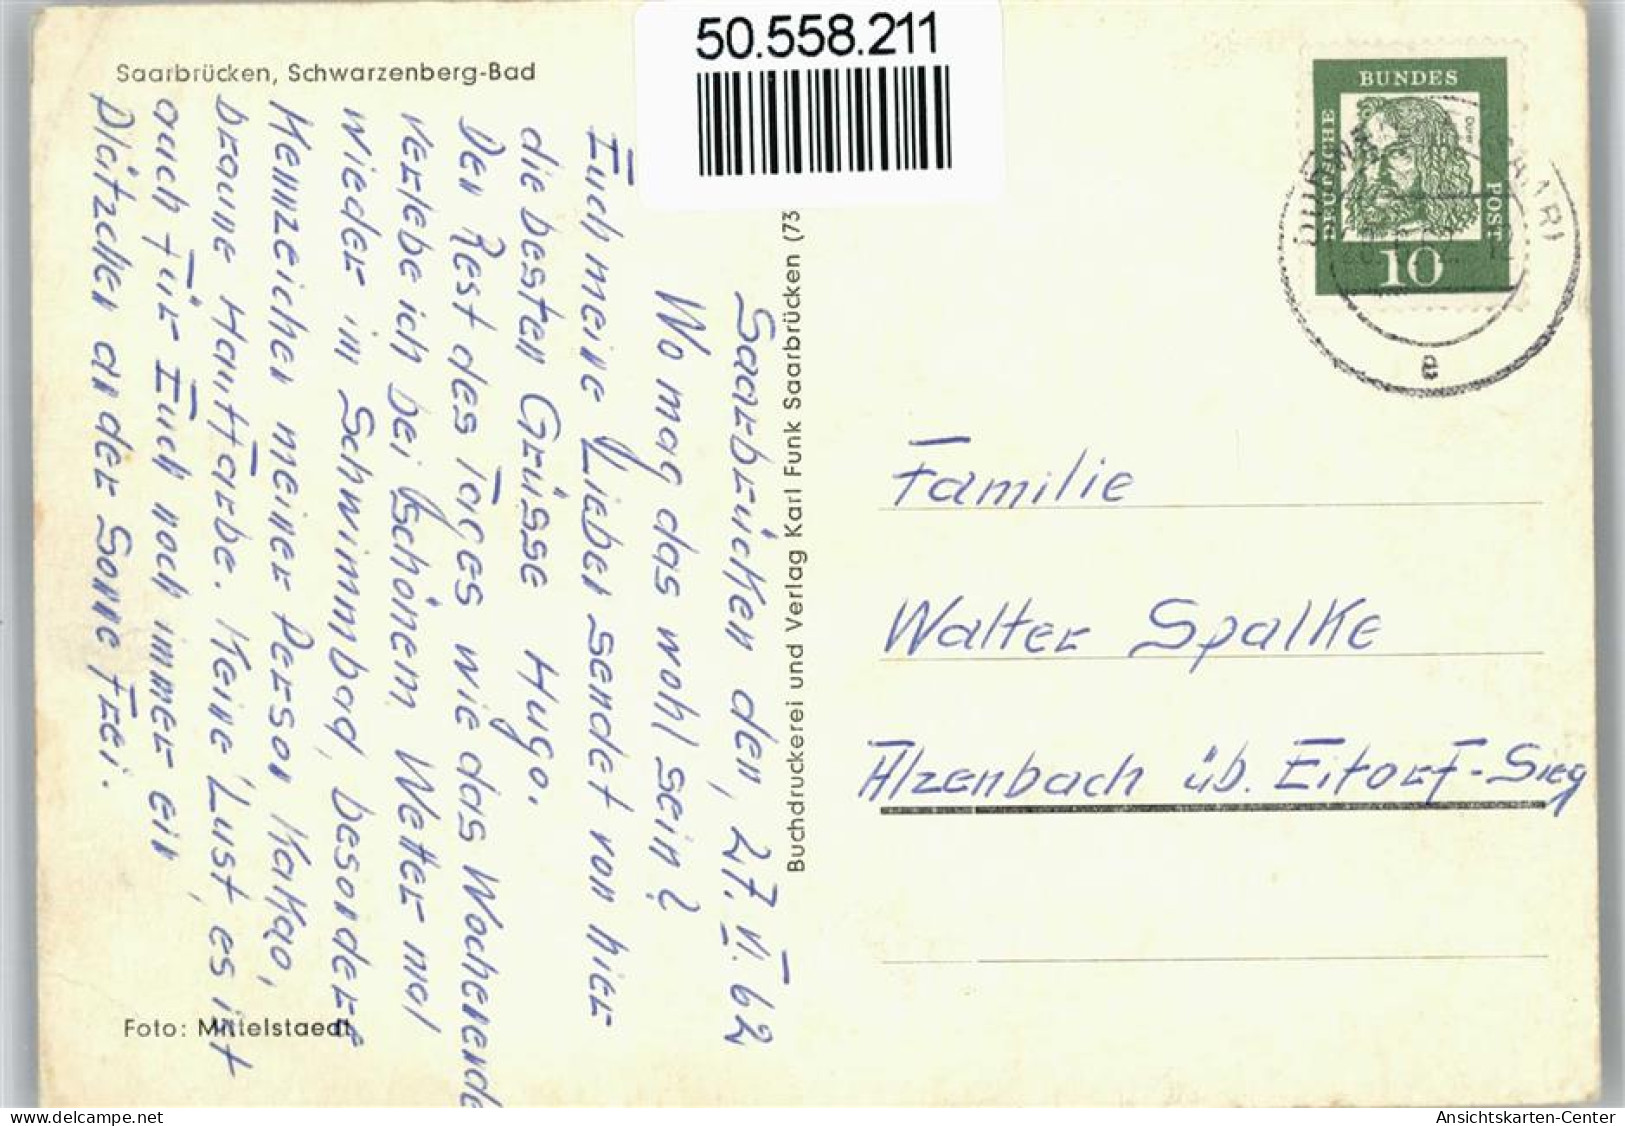 50.558.211
Saarbrücken, Schwarzenberg-Bad
DEUTSCHE
BUNDES
POST
Dürer
10
e
Saarbrücken den, 27. VI. 62
Wo mag das wohl sein?
Euch meine Lieben sendet von hier
die besten Grüsse Hugo.
Den Rest des Tages wie das Wochenende
verlebe ich bei schönem Wetter mal
wieder im Schwimmbad, besondere
Kennzeichen meiner Person Kakao,
braune Hautfarbe. Keine Lust, es ist
auch für Euch noch immer ein
Plätzchen an der Sonne frei.
Buchdruckerei und Verlag Karl Funk Saarbrücken (73
Familie
Walter Spalke
Alzenbach üb. Eitorf-Sieg
Foto: Mittelstaedt
www.delcampe.net
Ansichtskarten-Center